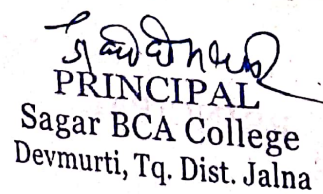 PRINCIPAL
Sagar BCA College
Devmurti, Tq. Dist. Jalna